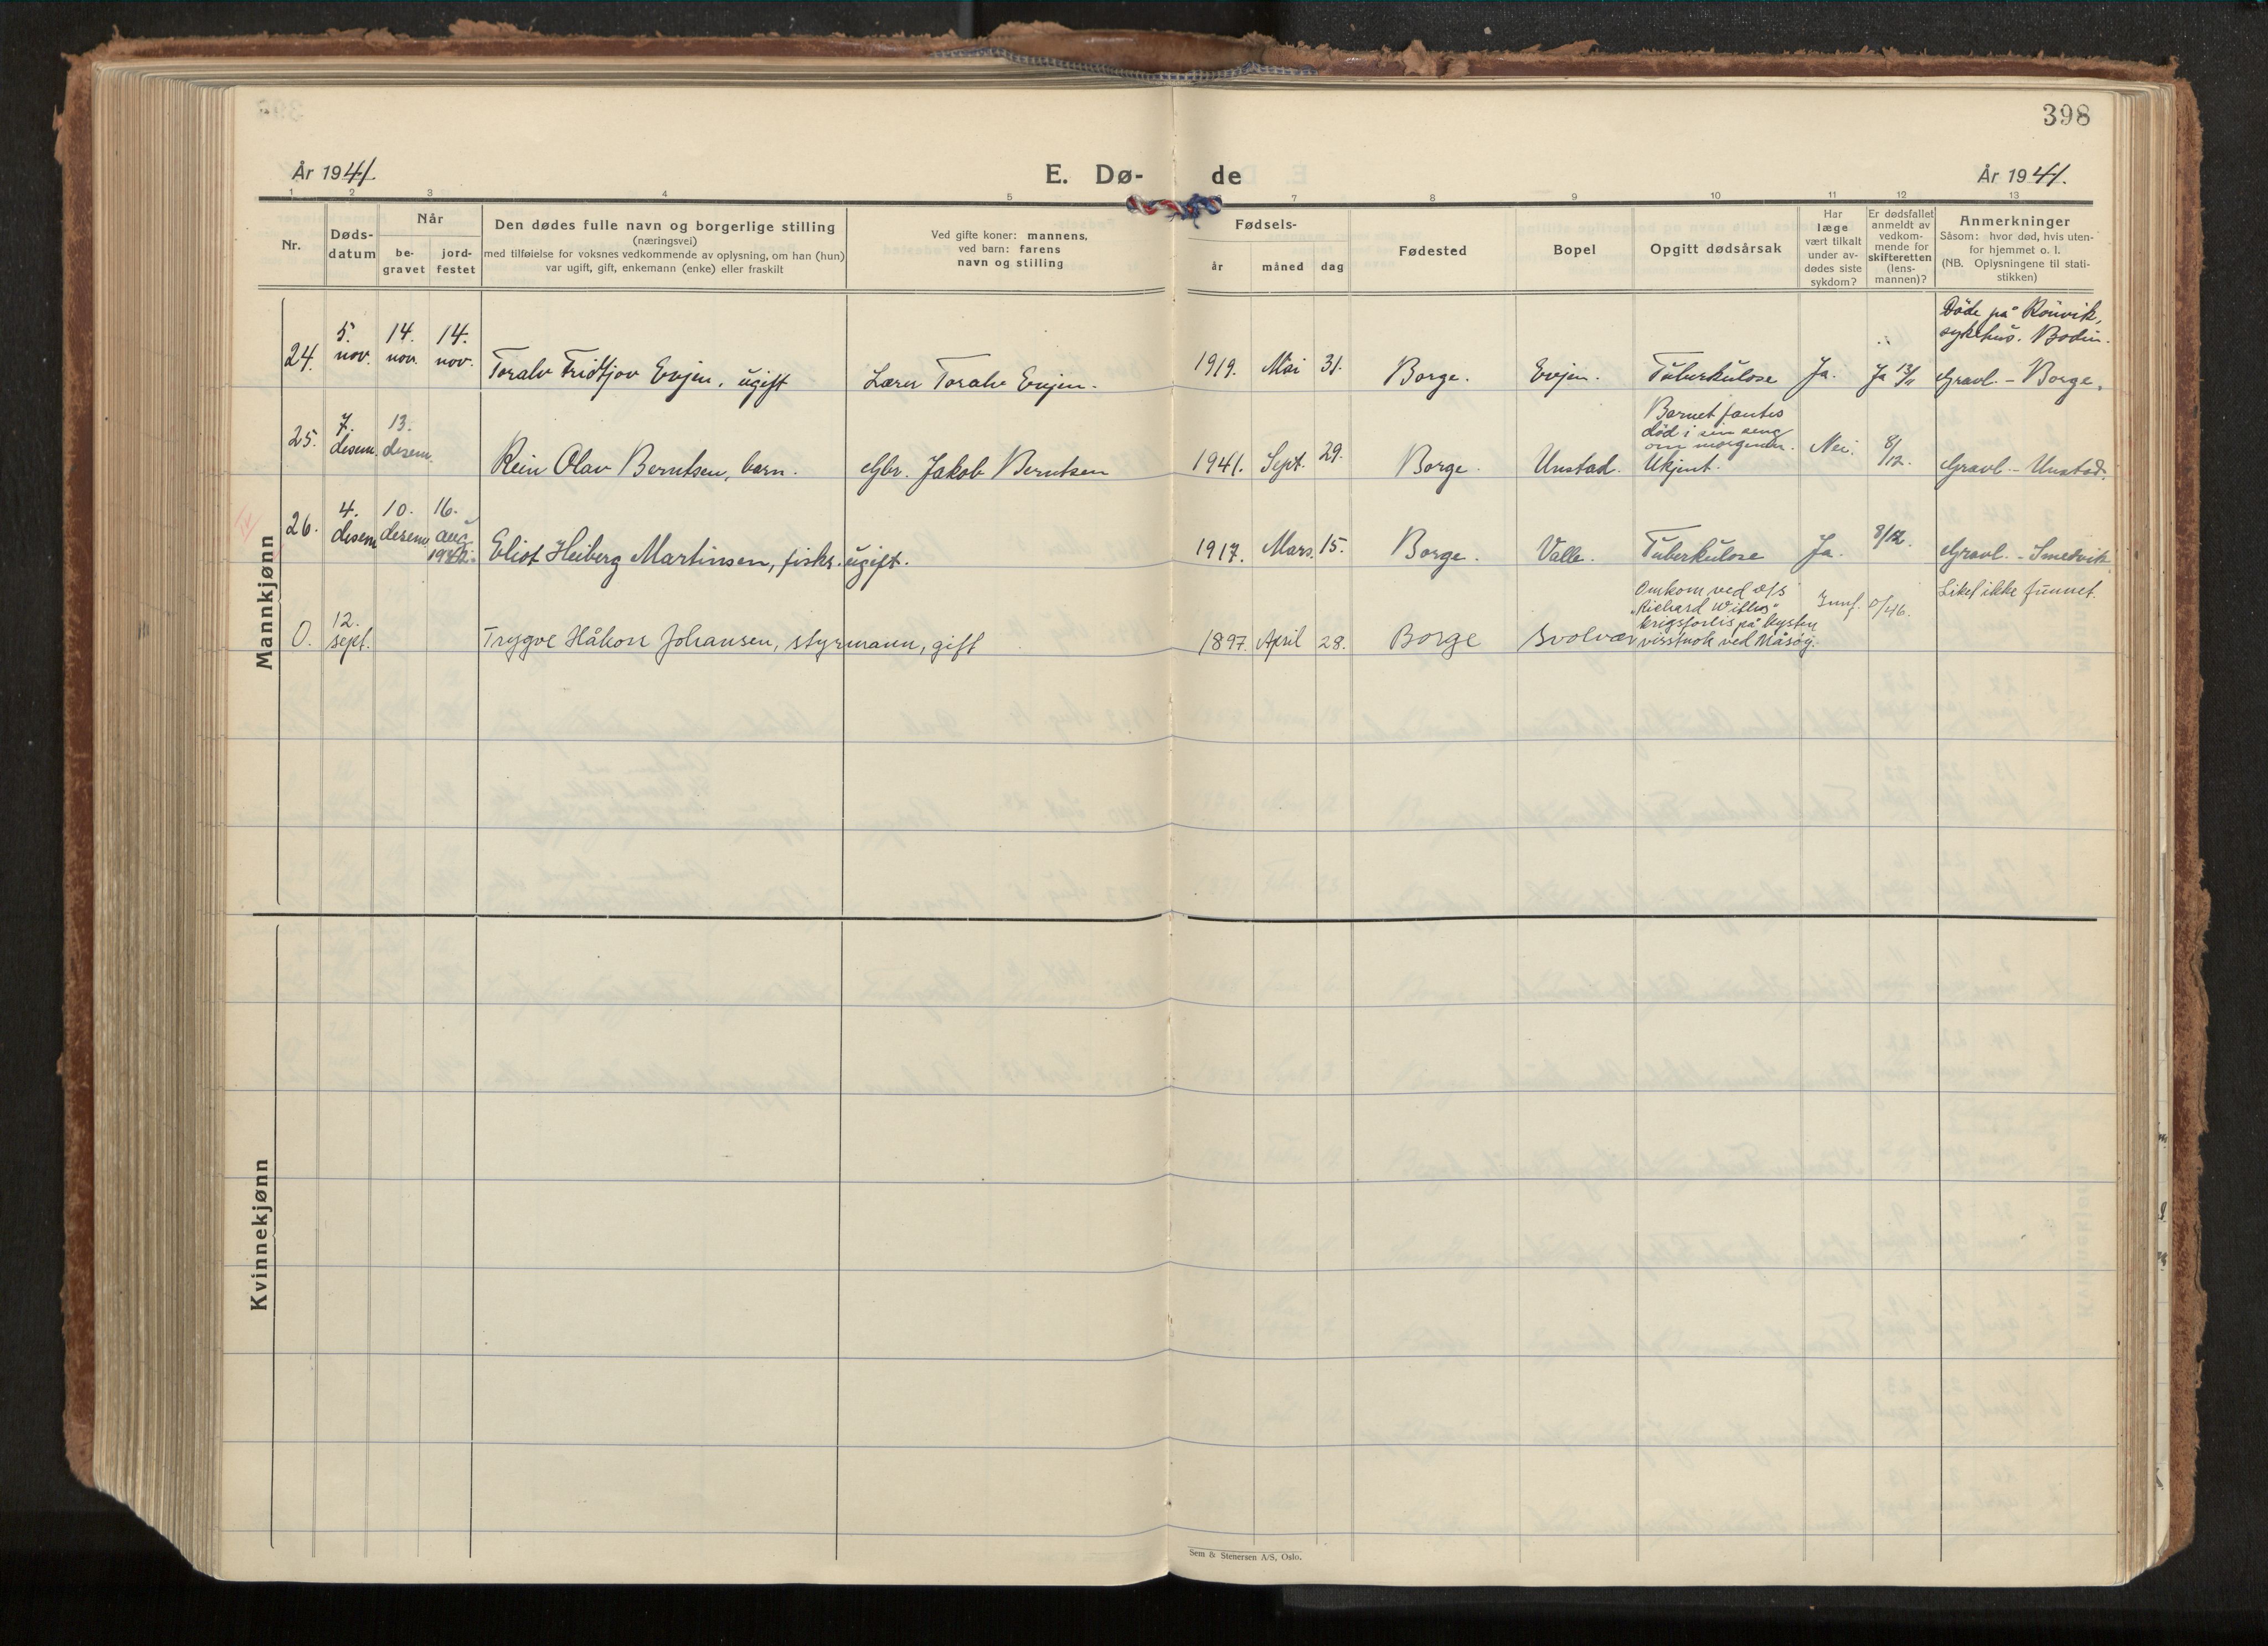 398
År 1941.
E. Dø-
de
År 1941.
1 2 3 4 5 7 8 9 10 11 12 13
Nr.
Døds-
datum
Når
be-
gravet
jord-
festet
Den dødes fulle navn og borgerlige stilling
(næringsvei)
med tilføielse for voksnes vedkommende av oplysning, om han (hun)
var ugift, gift, enkemann (enke) eller fraskilt
Ved gifte koner: mannens,
ved barn: farens
navn og stilling
Fødsels-
år
måned
dag
Fødested
Bopel
Opgitt dødsårsak
Har
læge
vært tilkalt
under av-
dødes siste
sykdom?
Er dødsfallet
anmeldt av
vedkom-
mende for
skifteretten
(lens-
mannen)?
Anmerkninger
Såsom: hvor død, hvis uten-
for hjemmet o. l.
(NB. Oplysningene til stati-
stikken)
Mannkjønn
24.
5.
nov.
14.
nov.
14.
nov.
Toralv Fridtjov Evjen, ugift
Lærer Toralv Evjen.
1919. Mai 31.
Borge.
Evjen.
Tuberkulose
Ja.
Ja 13/11
Døde på Rønvik,
sykehus. Bodin.
Gravl. - Borge.
25.
7.
desem.
13.
desem.
Rein Olav Berntsen, barn.
Gbr. Jakob Berntsen
1941. Sept. 29.
Borge.
Unstad.
Barnet fantes
død i sin seng
om morgenen.
Ukjent.
Nei.
8/12.
Gravl. - Unstad.
26.
4.
desem
10.
desem
16.
aug.
1942.
Eliot Heiberg Martinsen, fisker. ugift.
1917. Mars. 15.
Borge.
Valle.
Tuberkulose
Ja.
8/12.
Gravl. - Smedvik
0.
12.
sept.
Trygve Håkon Johansen, styrmann, gift
1897. April 28.
Borge
Svolvær
Omkom ved d/s
"Richard With"s
krigsforlis på kysten
visstnok ved Måsøy.
Innf.
/46.
Liket ikke funnet.
Kvinnekjønn
Sem & Stenersen A/S, Oslo.